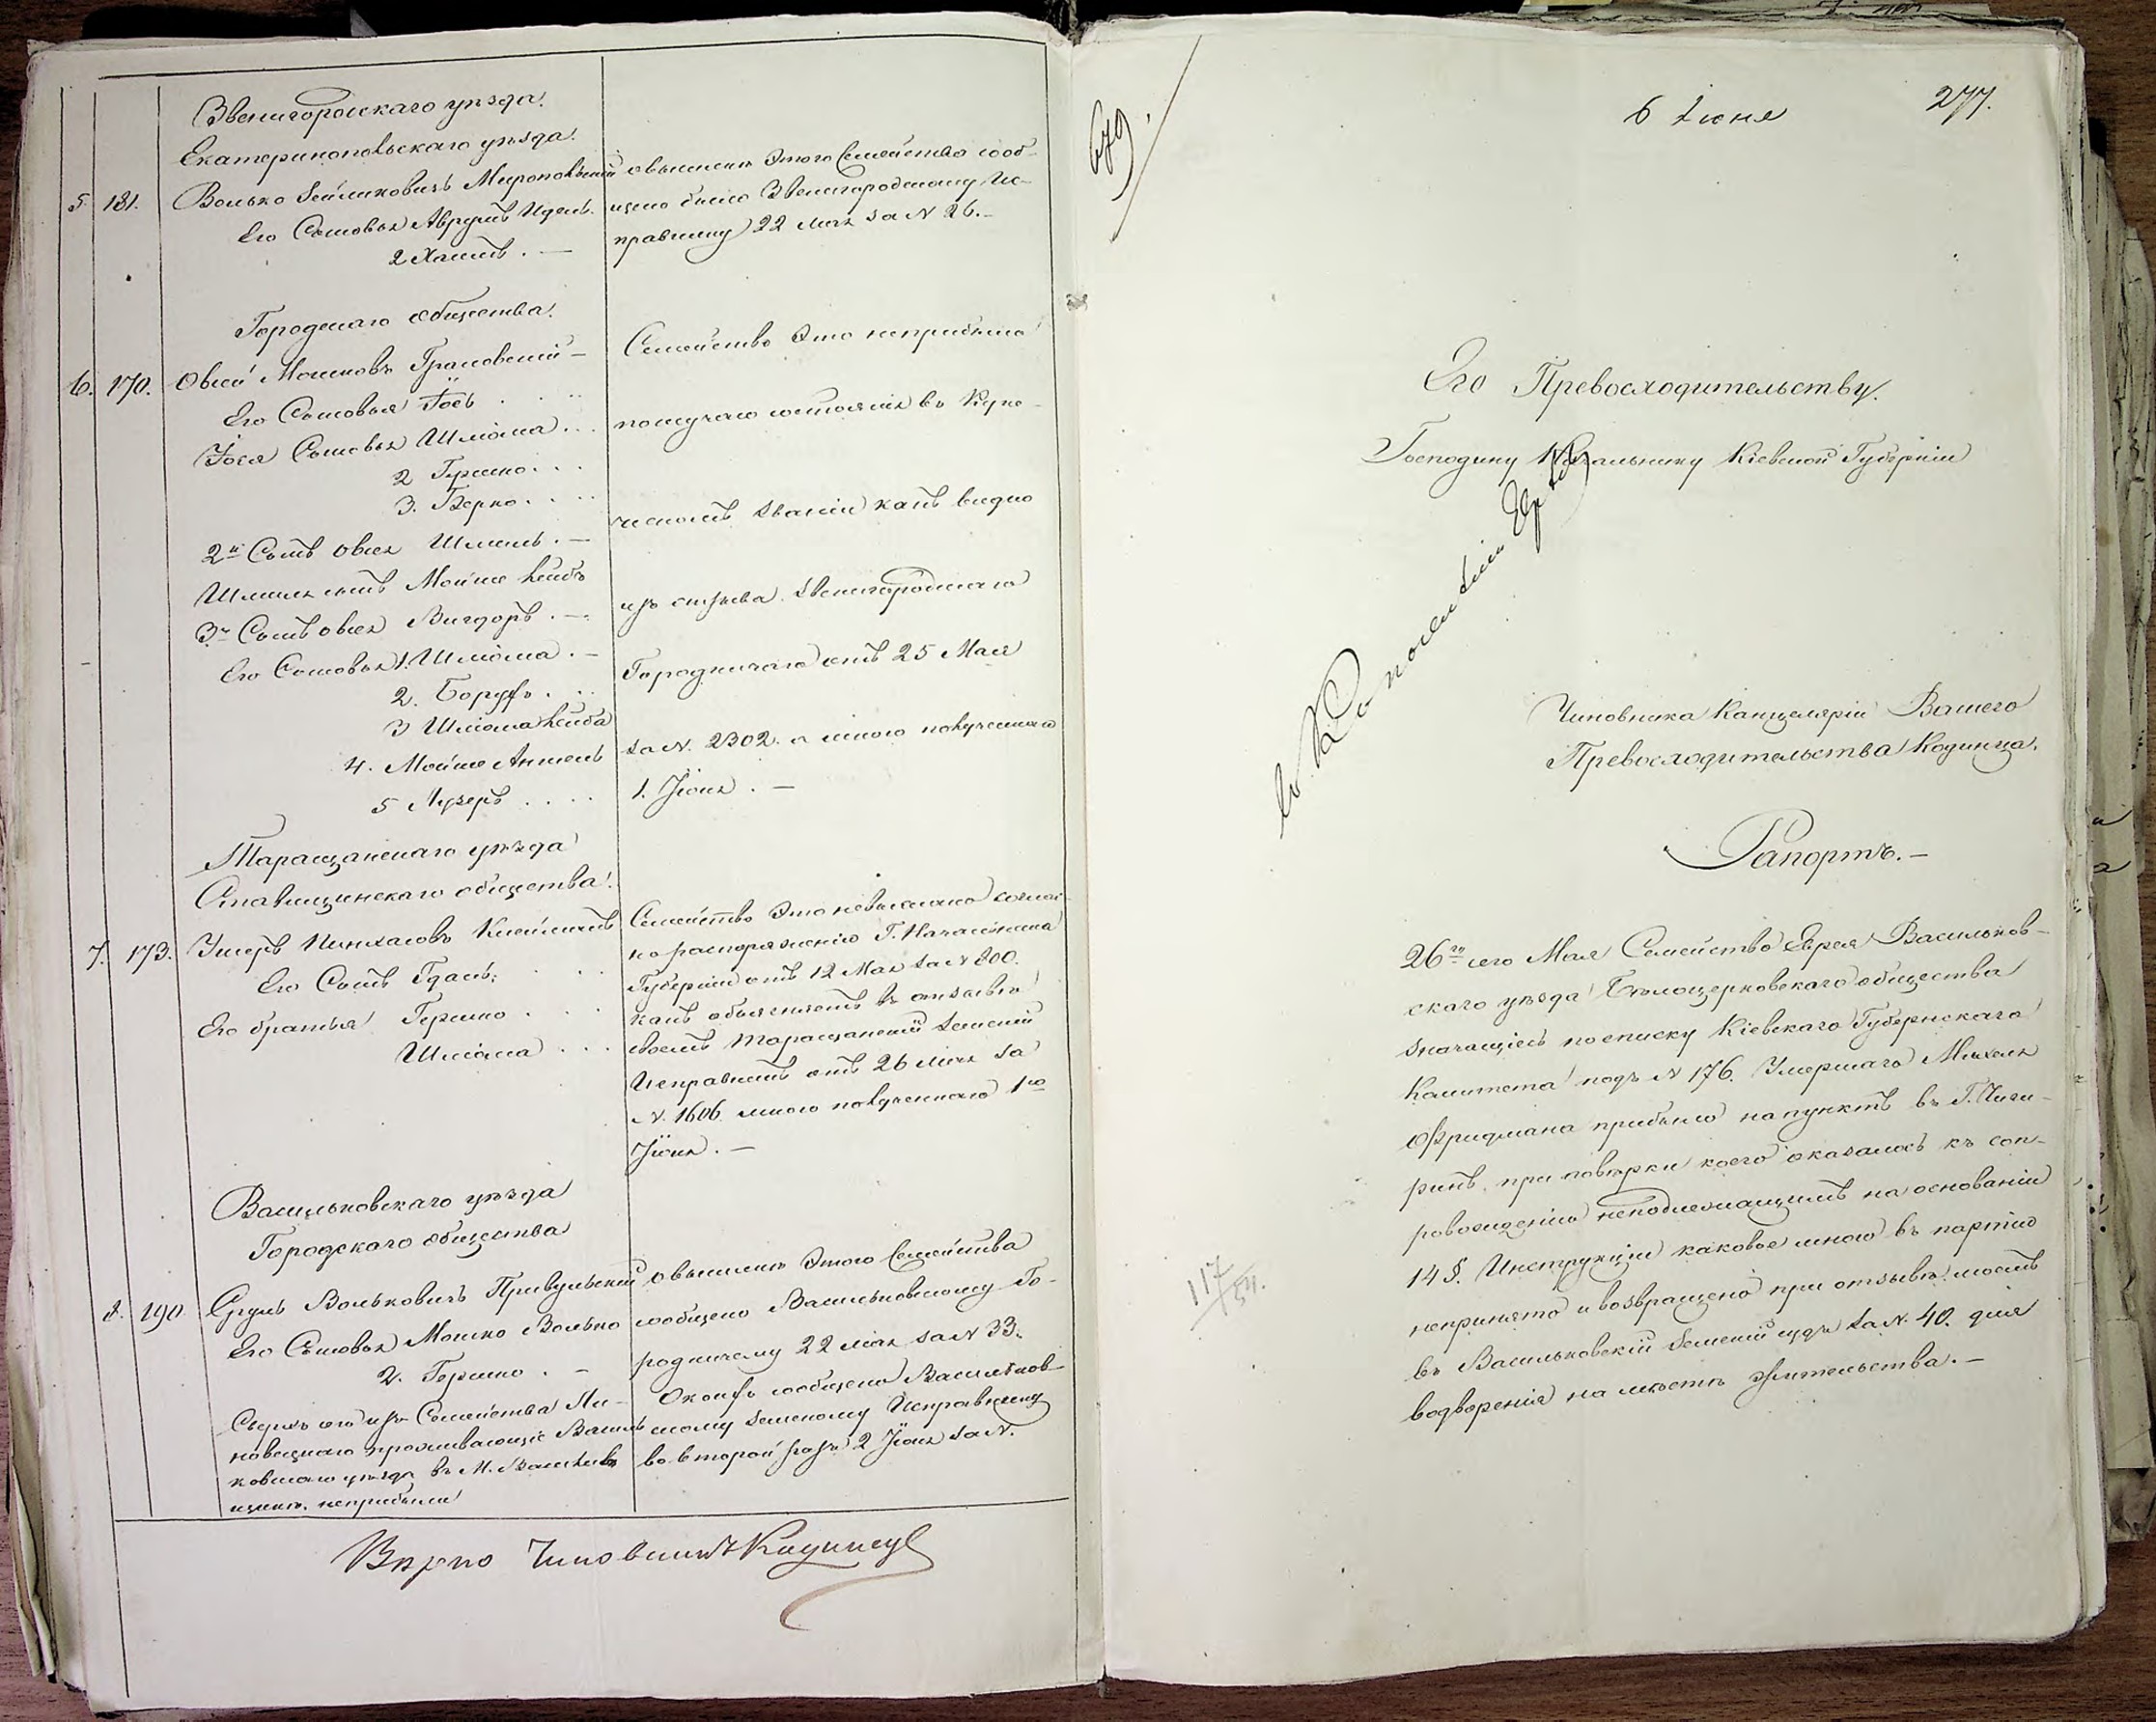 Звенигородскаго уѣзда.
Екатеринопольскаго уѣзда.
5. 181. Волько Зейликовичъ Миропольскій
Его Сыновья Аврумъ Идель.
2 Хаимъ. —
о высылкѣ этого Семейства сооб-
щено было Звенигородскому Ис-
правнику 22 мая за N 26. —
Городскаго общества.
6. 170. Овсей Мошковъ Грановскій —
Его Сыновья Іось . . .
Іося Сыновья Шліома . . .
2 Гершко . . .
3. Берко . . .
2й Сынъ Овсея Шмиль. —
Шмиля сынъ Мойше Лейбъ
3й Сынъ Овсея Вигдоръ. —
Его Сыновья 1. Шліома. —
2. Борухъ . . .
3 Шліома Лейба
4. Мойше Аншель
5 Лузеръ . . . .
Семейство Это неприбыло
послучаю состоянія въ Купе-
ческомъ званіи какъ видно
изъ отзыва Звенигородскаго
Городничаго отъ 25 Мая
за N. 2302. а мною полученнаго
1. Іюня. —
Таращанскаго уѣзда
Ставищинскаго общества.
7. 173. Умеръ Пинхасовъ
Его Сынъ
Его братья Гершко . . .
Шліома . . .
Семейство Это невыслано соглас-
но распоряженію Г. Начальника
Губерніи отъ 12 Мая за N 800.
какъ объясняетъ въ отзывѣ
своемъ Таращанскій Земскій
Исправникъ отъ 26 мая за
N. 1606 мною полученнаго 1го
Іюня. —
Васильковскаго уѣзда
Городскаго общества
8. 190. Сруль Вольковичъ
Его Сыновья Мошко Волько
2. Гершко. —
о высылкѣ Этого Семейства
сообщено Васильковскому Го-
родничему 22 мая за N 33.
сообщено Васильков-
скому Земскому Исправнику
во второй разъ 2 Іюня за N.
изъ Семейства
проживающіе Василь-
ковскаго уѣзда въ М.
неприбыли
Вѣрно Чиновникъ Кодинецъ
679.
6 Іюня
277.
Его Превосходительству.
Господину Начальнику Кіевской Губерніи
Чиновника Канцеляріи Вашего
Превосходительства Кодинца.
Рапортъ. —
26го сего Мая Семейство Еврея Васильков-
скаго уѣзда Бѣлоцерковскаго общества
значащіесь по списку Кіевскаго Губернскаго
Комитета подъ N 176. Умершаго Михеля
Фридмана прибыло на пунктъ въ Г. Чиги-
ринъ, при повѣрки коего оказалось къ соп-
ровожденію неподлежащимъ на основаніи
14 §. Инструкціи каковое мною въ партію
непринято и возвращено при отзывѣ моемъ
въ Васильковскій Земскій судъ за N. 40. для
водворенія на мѣстѣ жительства. —
117/54.